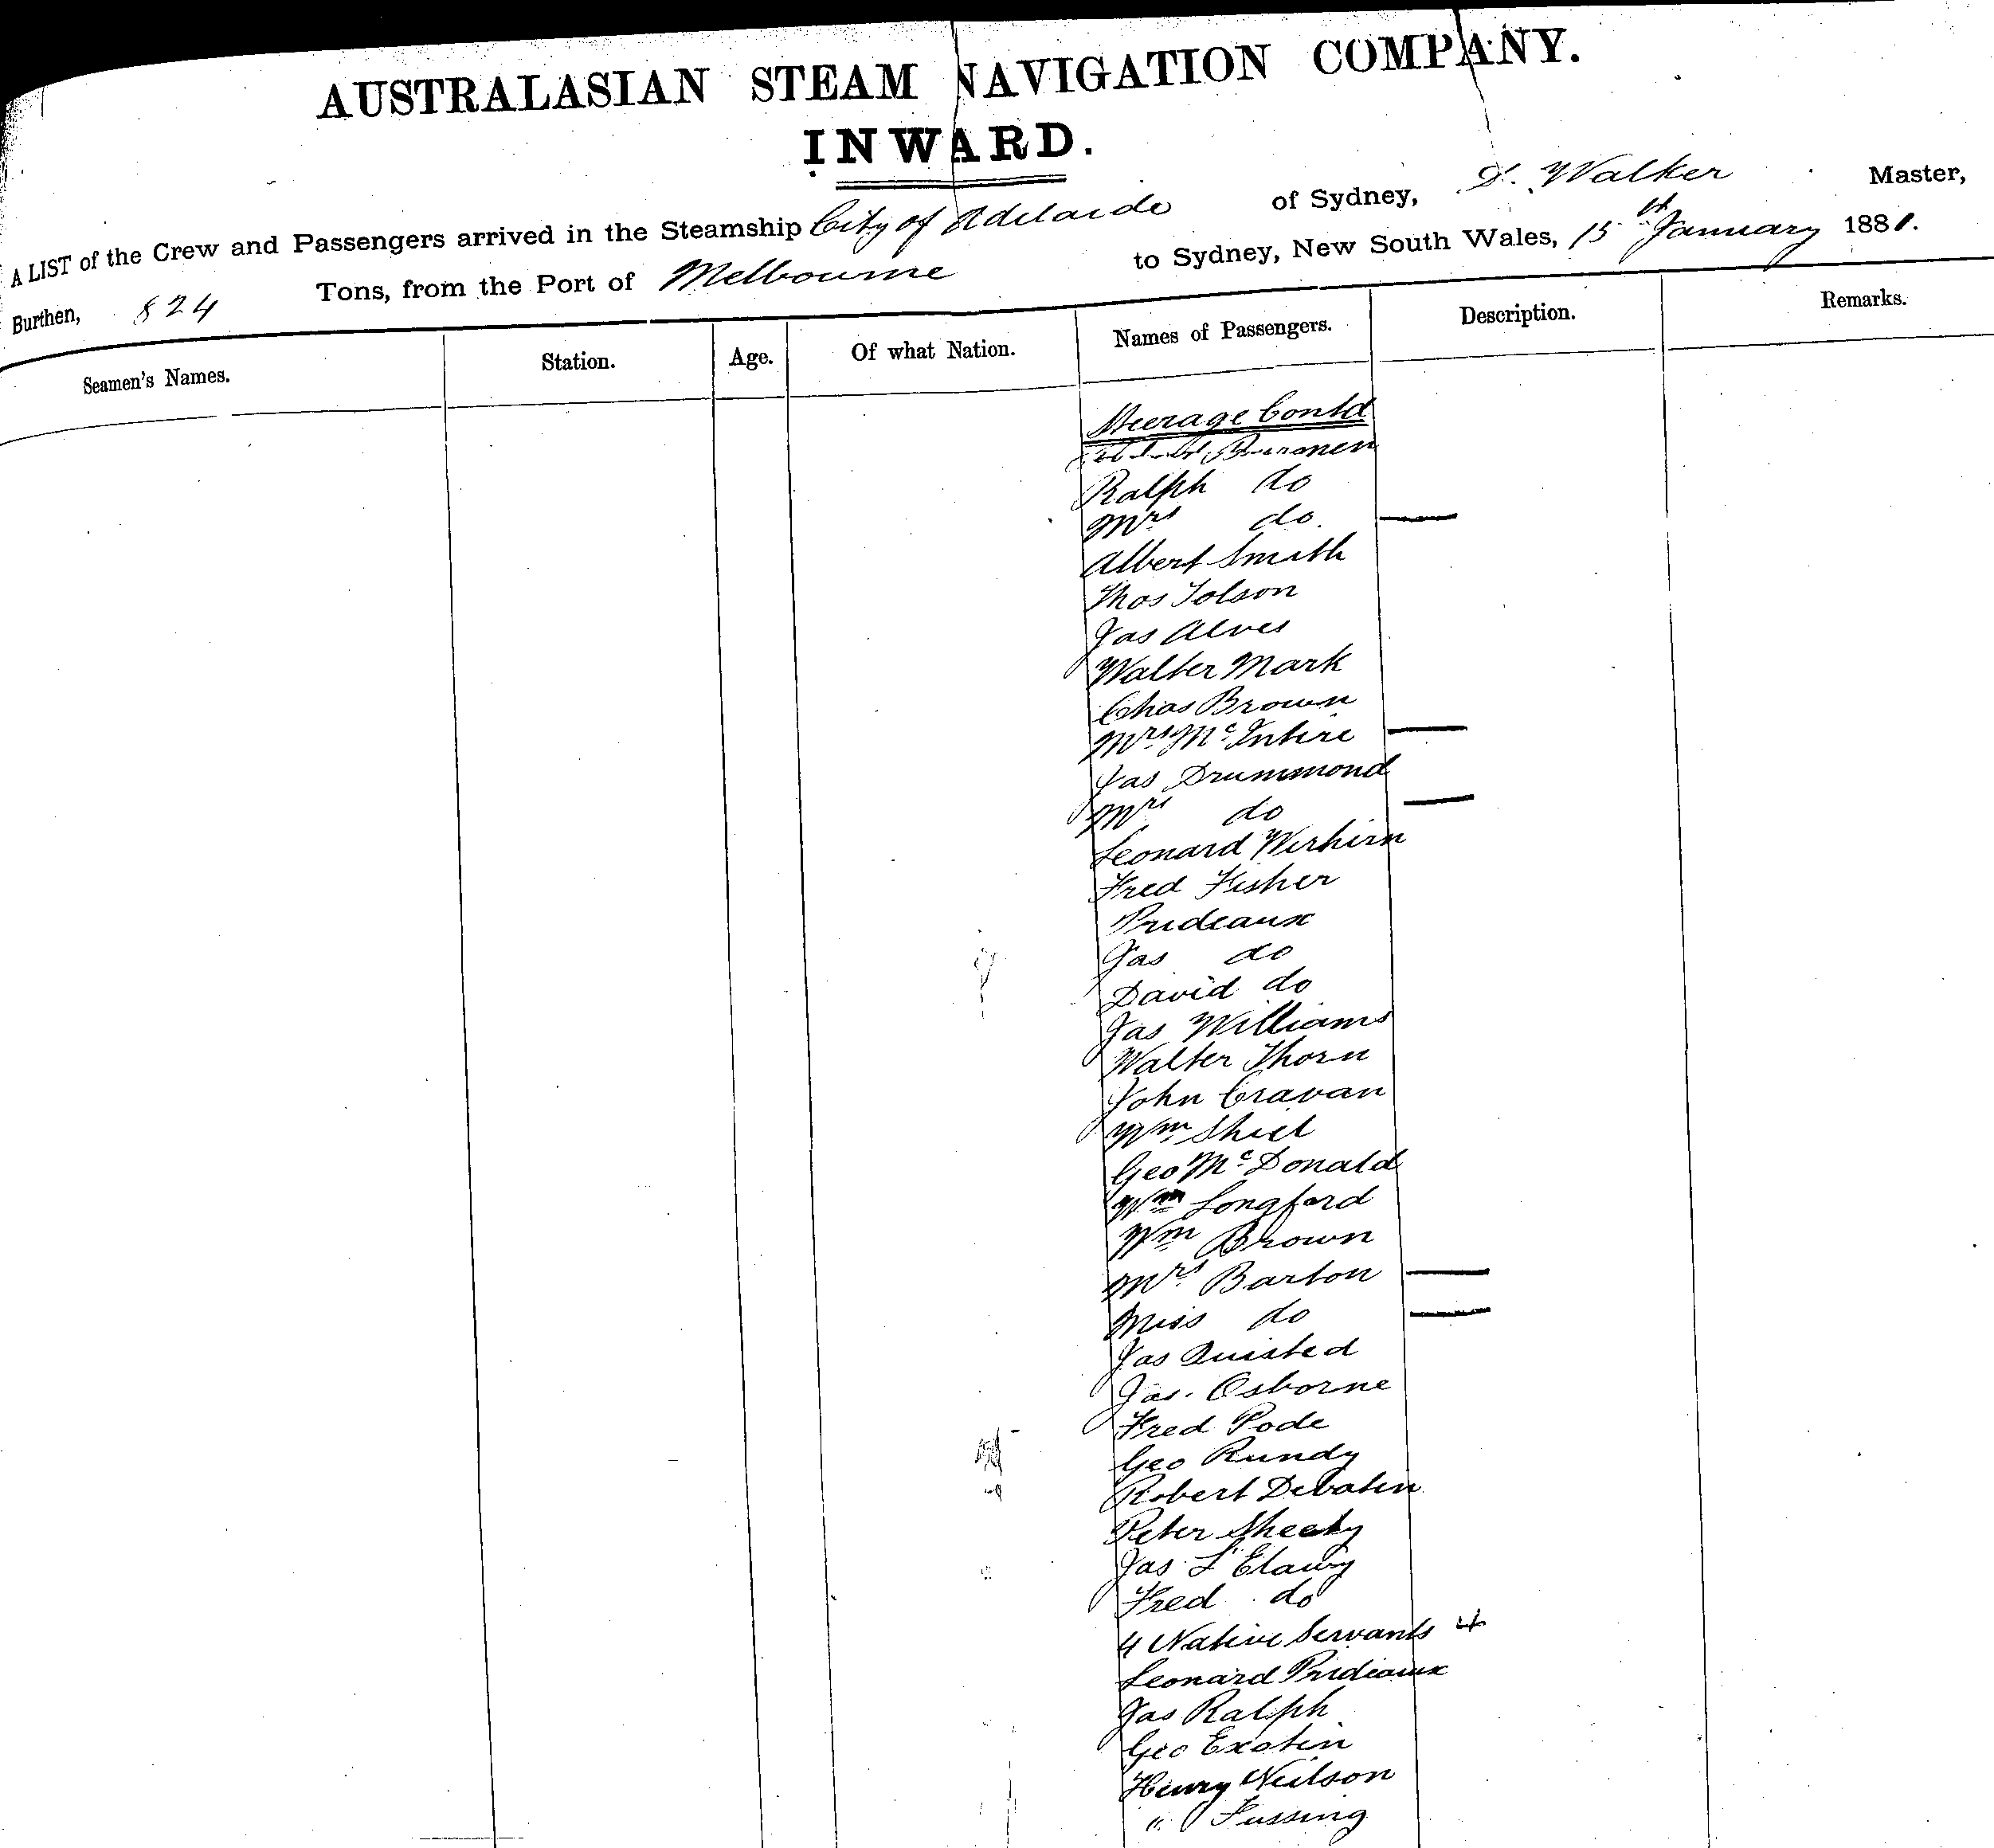 AUSTRALASIAN STEAM NAVIGATION COMPANY.
INWARD.
A LIST of the Crew and Passengers arrived in the Steamship City of Adelaide of Sydney, D. Walker Master,
Burthen, 824 Tons, from the Port of Melbourne to Sydney, New South Wales, 15th January 1881.
Seamen's Names. Station. Age. Of what Nation. Names of Passengers. Description. Remarks.
Steerage Contd
Burmen
Ralph do
Mrs do.
Albert Smith
Thos Tolson
Jas Alves
Walter Mark
Chas Brown
Mrs McIntire
Jas Drummond
Mrs do
Leonard
Fred Fisher
Prideaux
Jas do
David do
Jas Williams
Walter Thorn
John Cravan
Wm Shiel
Geo McDonald
Wm Longford
Wm Brown
Mrs Barton
Miss do
Jas Quisted
Jas. Osborne
Fred Pode
Geo Rundy
Robert Debatin
Peter Sheehy
Jas
Fred do
4 Native Servants 4
Leonard Prideaux
Jas Ralph
Geo Exotin
Henry Neilson
" Fussing